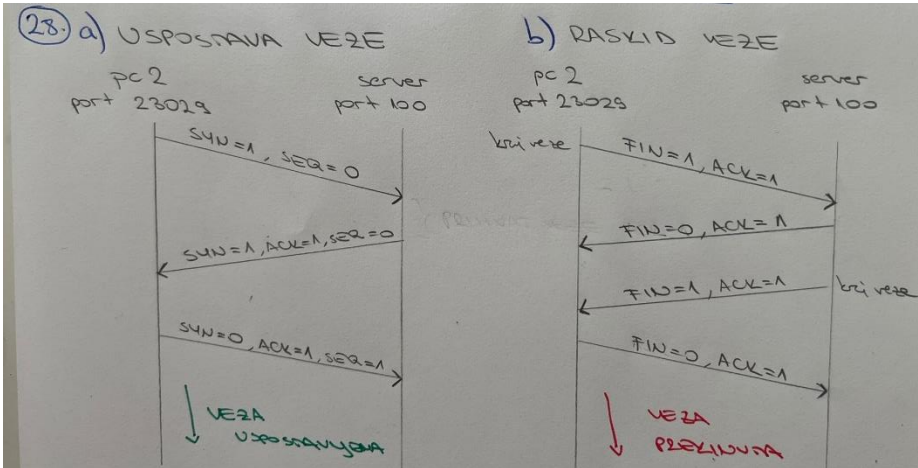 28. a) USPOSTAVA VEZE
pc 2
port 23029
server
port 100
SYN=1, SEQ=0
SYN=1, ACK=1, SEQ=0
SYN=0, ACK=1, SEQ=1
VEZA
USPOSTAVLJENA
b) RASKID VEZE
pc 2
port 23029
server
port 100
kraj veze
FIN=1, ACK=1
FIN=0, ACK=1
FIN=1, ACK=1
kraj veze
FIN=0, ACK=1
VEZA
PREKINUTA